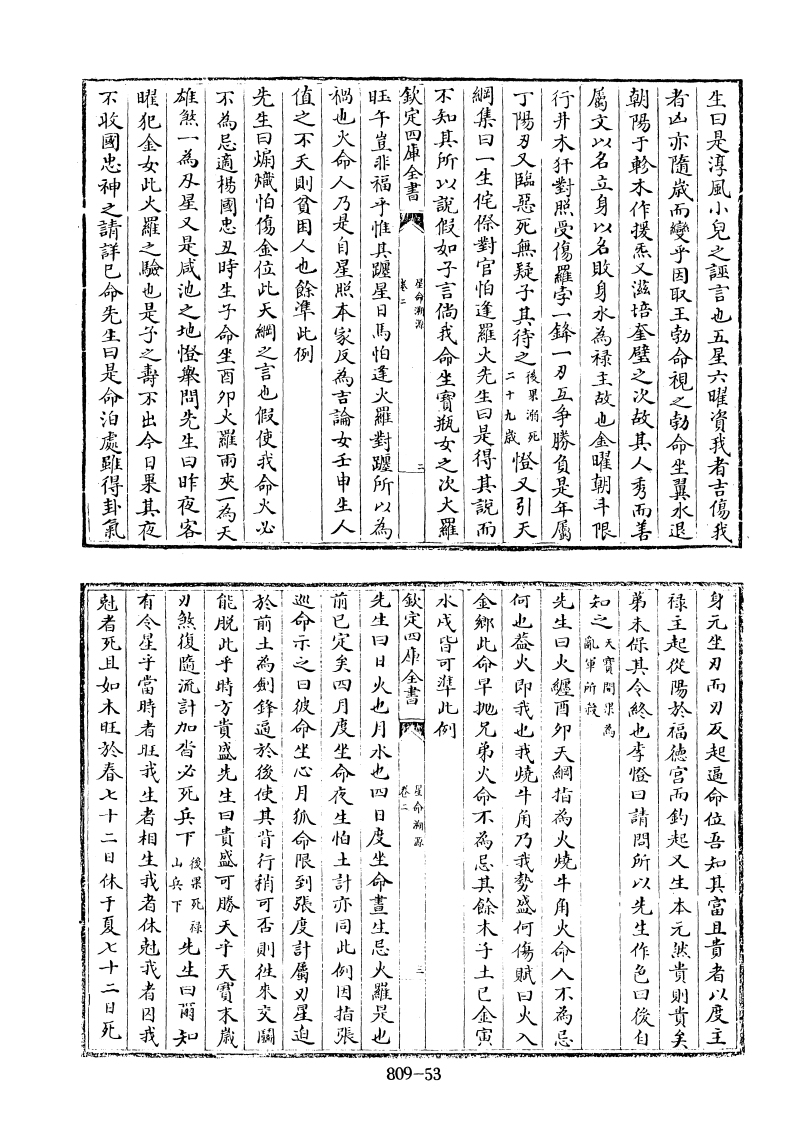 生曰是淳風小兒之誣言也五星六曜資我者吉傷我
者凶亦隨歳而變乎因取王勃命視之勃命坐翼水退
朝陽于軫木作援炁又滋培奎璧之次故其人秀而善
屬文以名立身以名敗身水為禄主故也金曜朝斗限
行井木犴對照受傷羅孛一鋒一刃互争勝負是年屬
丁陽刃又臨惡死無疑子其待之後果溺死二十九歳憕又引天
綱集曰一生侘傺對官怕逢羅火先生曰是得其説而
不知其所以說假如子言倘我命坐寶瓶女之次火羅
欽定四庫全書
星命溯源
卷二
二
旺午豈非福乎惟其躔星日馬怕逢火羅對躔所以為
禍也火命人乃是自星照本家反為吉論女壬申生人
值之不夭則貧困人也餘準此例
先生曰煽熾怕傷金位此天綱之言也假使我命火必
不為忌適楊國忠丑時生子命坐酉卯火羅兩夾一為天
雄煞一為刃星又是咸池之地憕舉問先生曰昨夜客
曜犯金女此火羅之驗也是子之壽不出今日果其夜
不收國忠神之請詳已命先生曰是命泊處雖得卦氣
身元坐刃而刃反起逼命位吾知其富且貴者以度主
禄主起從陽於福德宫而鈞起又生本元然貴則貴矣
第未保其令終也李憕曰請問所以先生作色曰後自
知之天寶間果為亂軍所殺
先生曰火纏酉卯天綱指為火燒牛角火命人不為忌
何也葢火即我也我燒牛角乃我勢盛何傷賦曰火入
金鄉此命早抛兄弟火命不為忌其餘木子土巳金寅
水戌皆可準此例
欽定四庫全書
星命溯源
卷二
三
先生曰日火也月水也四日度坐命晝生忌火羅是也
前已定矣四月度坐命夜生怕土計亦同此例因指張
巡命示之曰彼命坐心月狐命限到張度計屬刃星迫
於前土為劍鋒逼於後使其背行稍可否則徃來交關
能脱此乎時方貴盛先生曰貴盛可勝天乎天寳本歳
刃煞復隨流計加沓必死兵下後果死禄山兵下先生曰爾知
有令星乎當時者旺我生者相生我者休尅我者囚我
尅者死且如木旺於春七十二日休于夏七十二日死
809-53